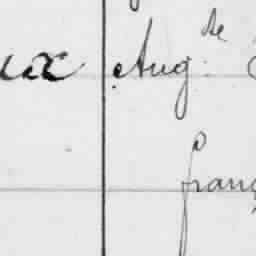 ux Aug.te
franç